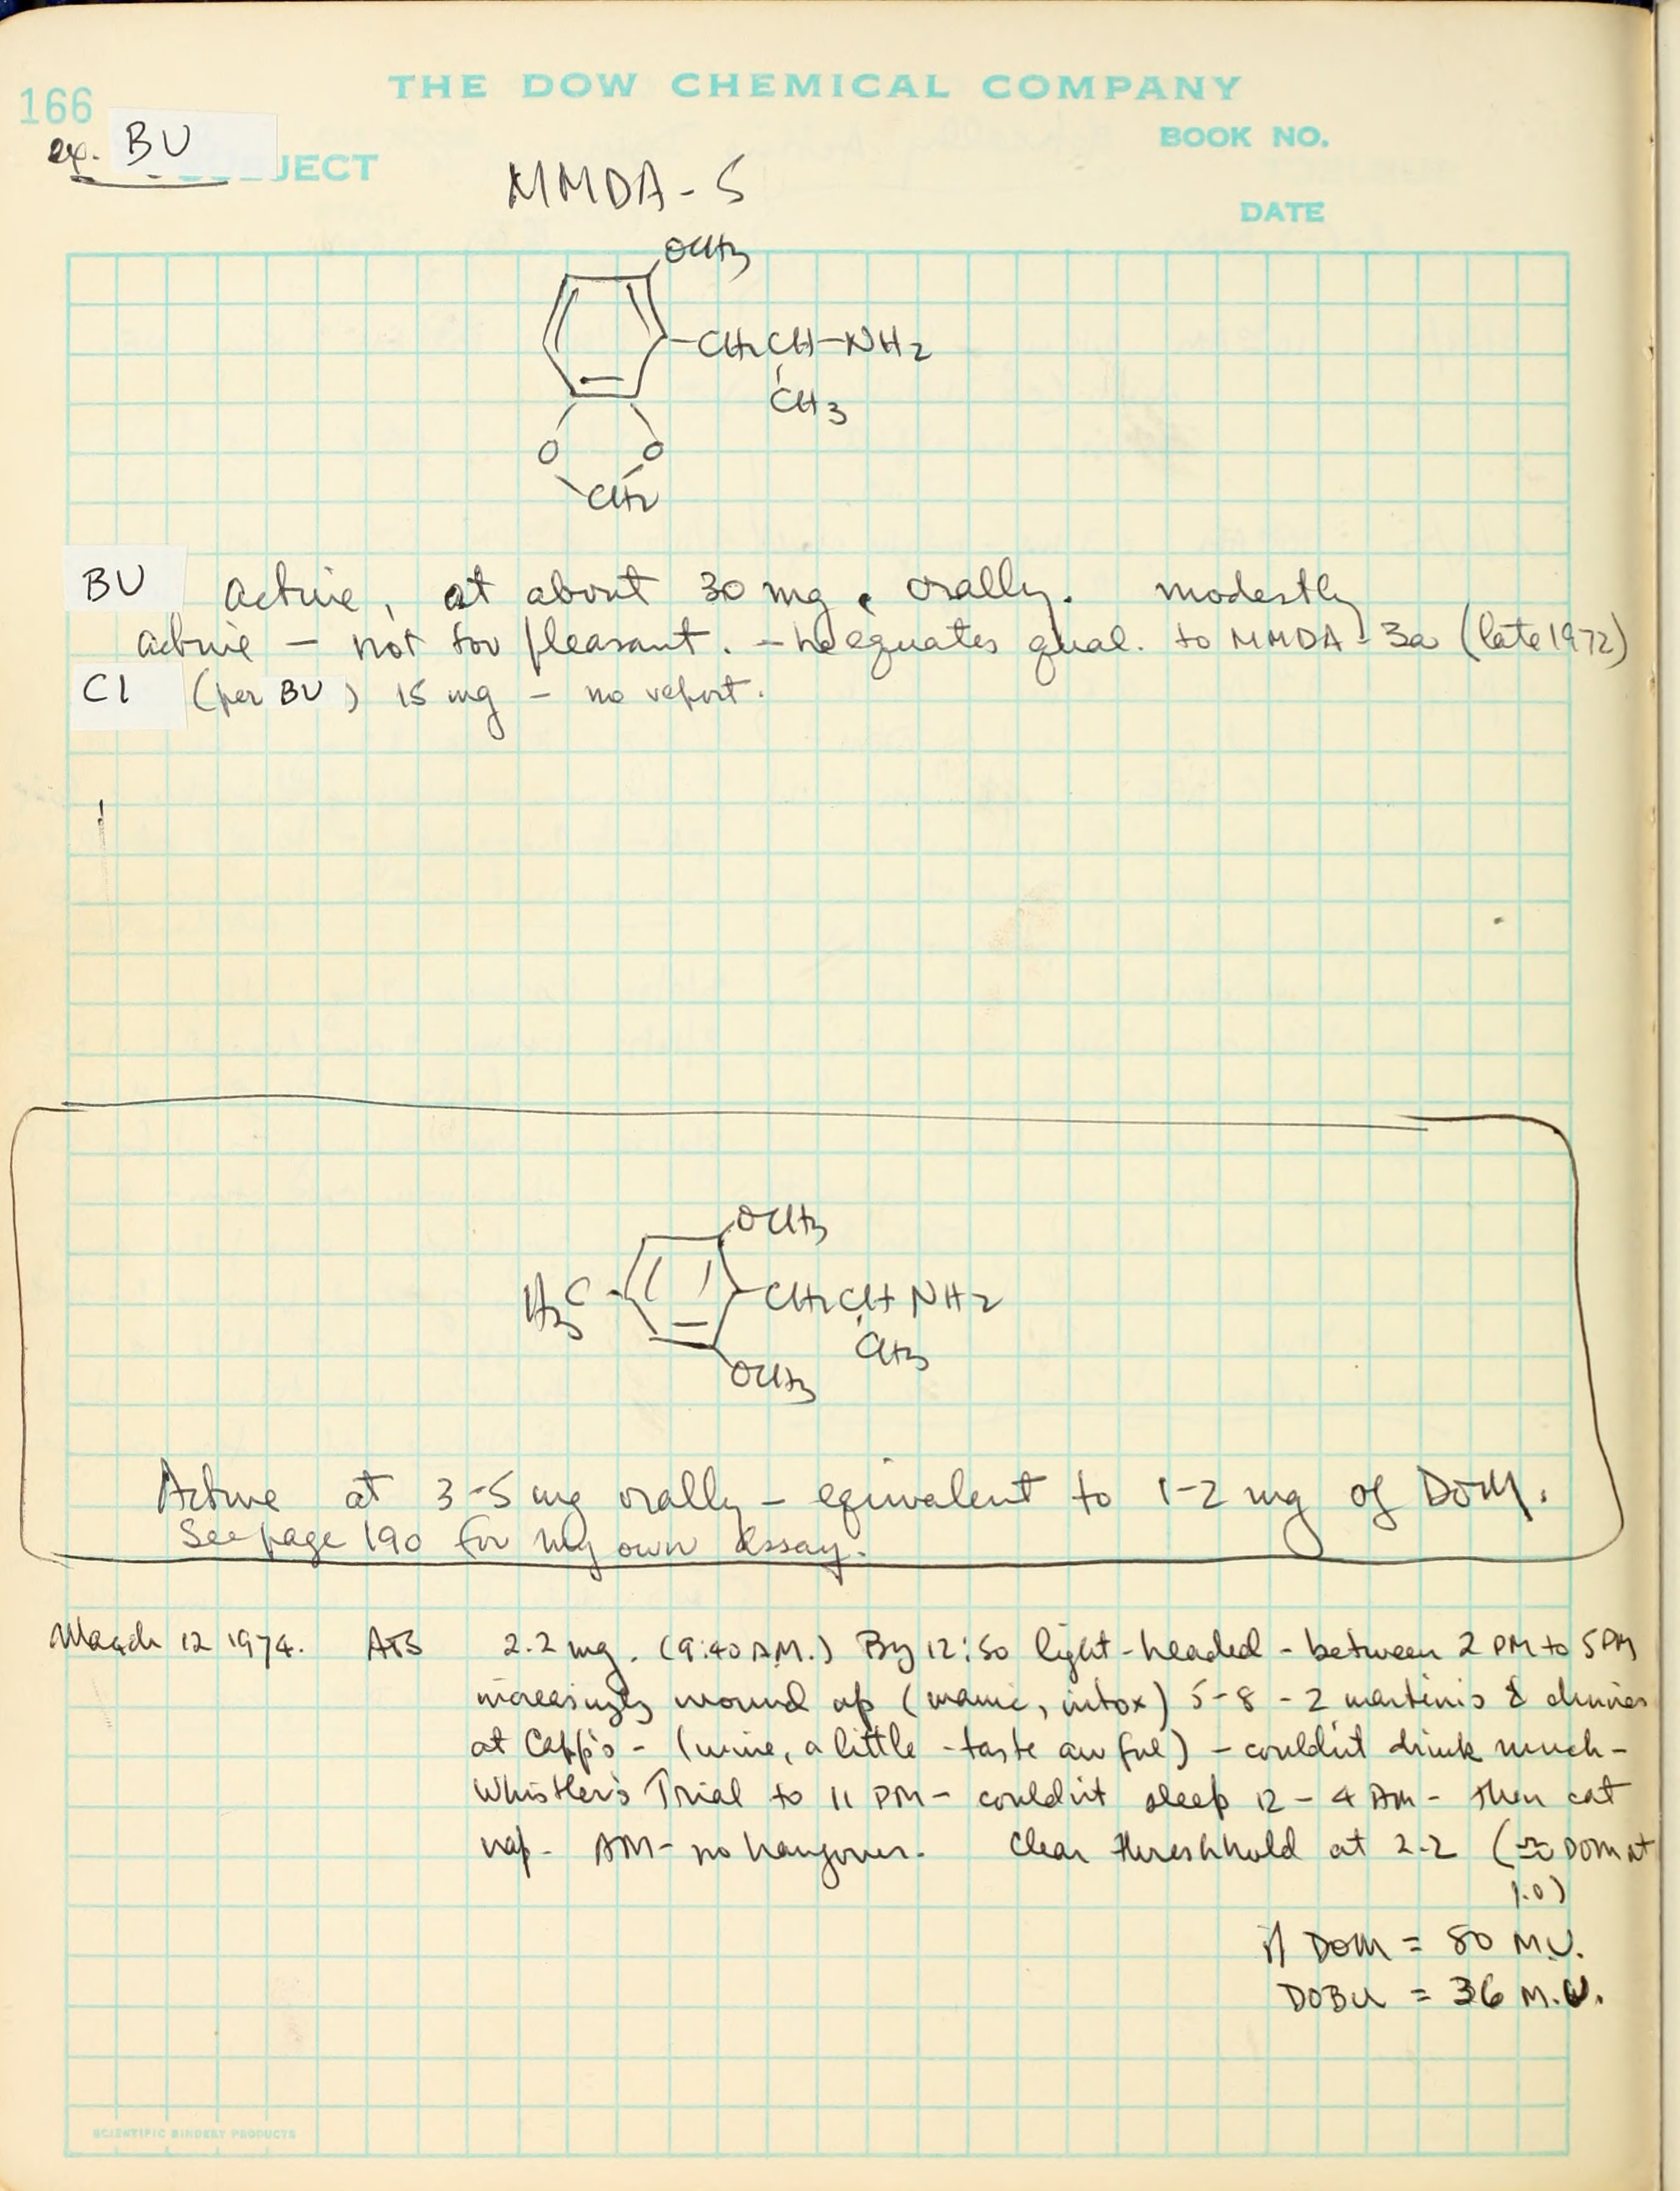 THE DOW CHEMICAL COMPANY
166
BOOK NO.
ex. BU
JECT
MMDA-5
DATE
OCH3
-CH2CH-NH2
CH3
O O
CH2
BU Active, at about 30 mg, orally. modestly
active – not too pleasant. – he equates qual. to MMDA-3a (late 1972)
C1 (per BU) 15 mg – no report.
OCH3
H3C CH2CHNH2
CH3
OCH3
Active at 3-5 mg orally – equivalent to 1-2 mg of DOM.
See page 190 for my own assay.
March 12 1974. ATS 2.2 mg. (9:40 A.M.) By 12:50 light-headed – between 2 PM to 5 PM
increasingly wound up (manic, intox) 5-8 - 2 martinis & dinner
at Capp's – (wine, a little - taste awful) – couldn't drink much –
Whistler's Trial to 11 PM – couldn't sleep 12 - 4 AM – then cat
nap – AM – no hangover. Clear threshhold at 2.2 (≈ DOM at
1.0)
if DOM = 80 M.U.
DOBU = 36 M.U.
SCIENTIFIC BINDERY PRODUCTS